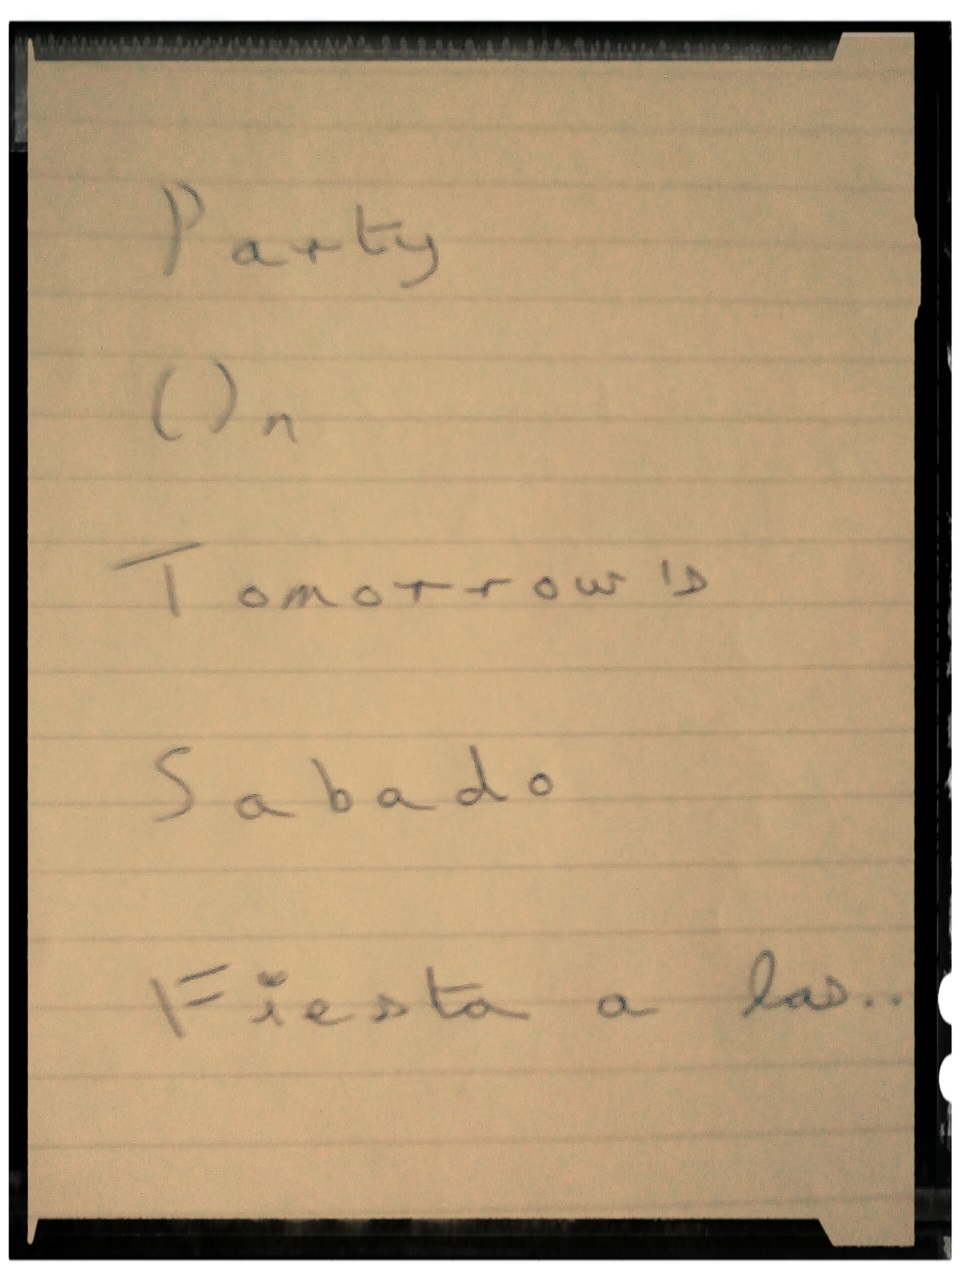 Party
On
Tomorrow's
Sabado
Fiesta a las..